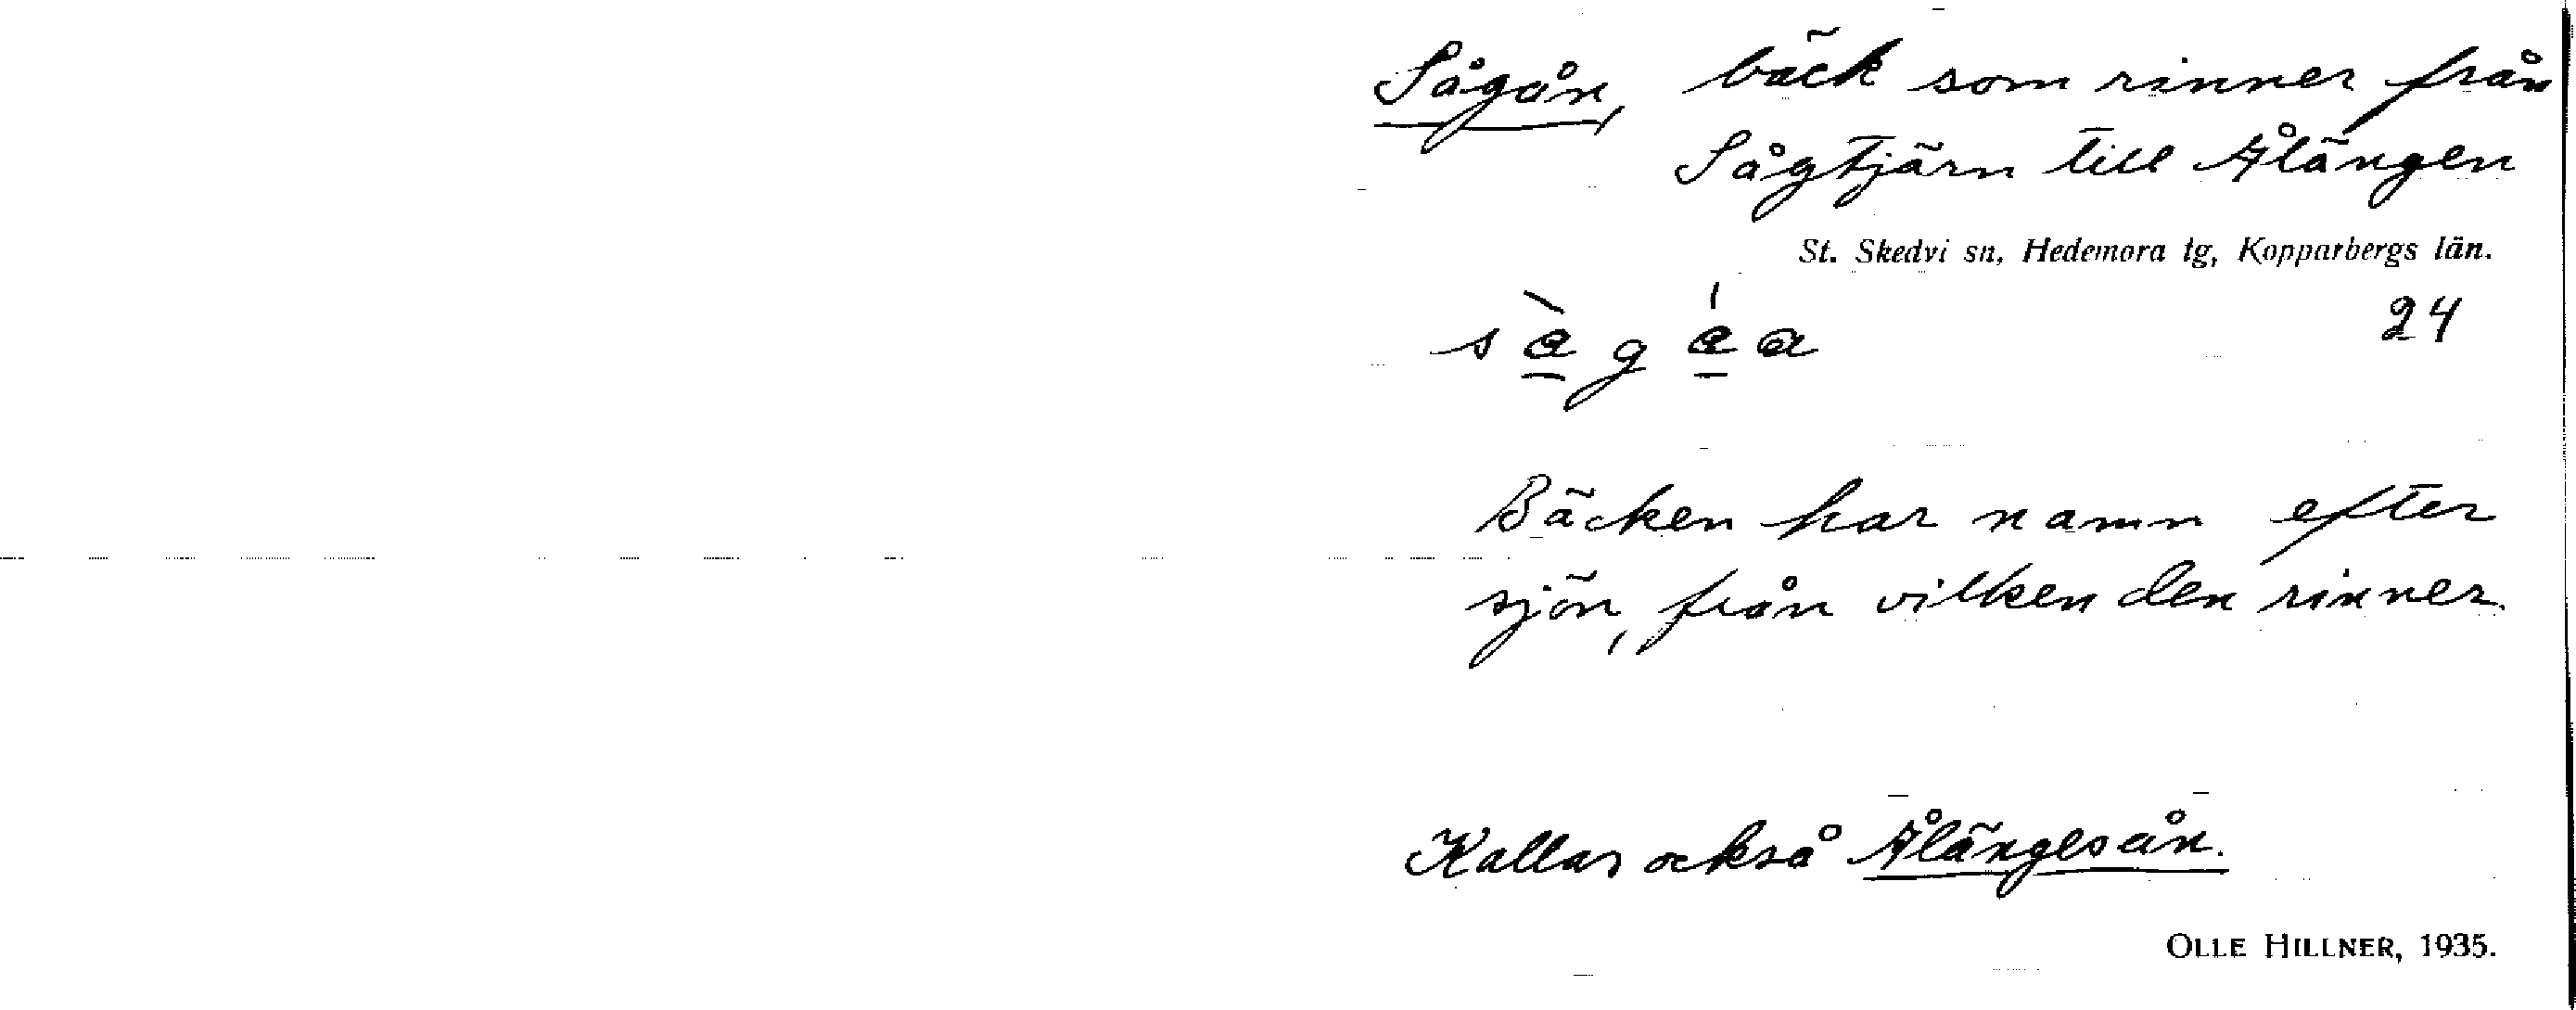 Sågån, bäck som rinner från
Sågtjärn till Ålängen
St. Skedvi sn, Hedemora tg, Kopparbergs län.
24
Bäcken har namn efter
sjön, från vilken den rinner.
Kallas också Ålängesån.
OLLE HILLNER, 1935.